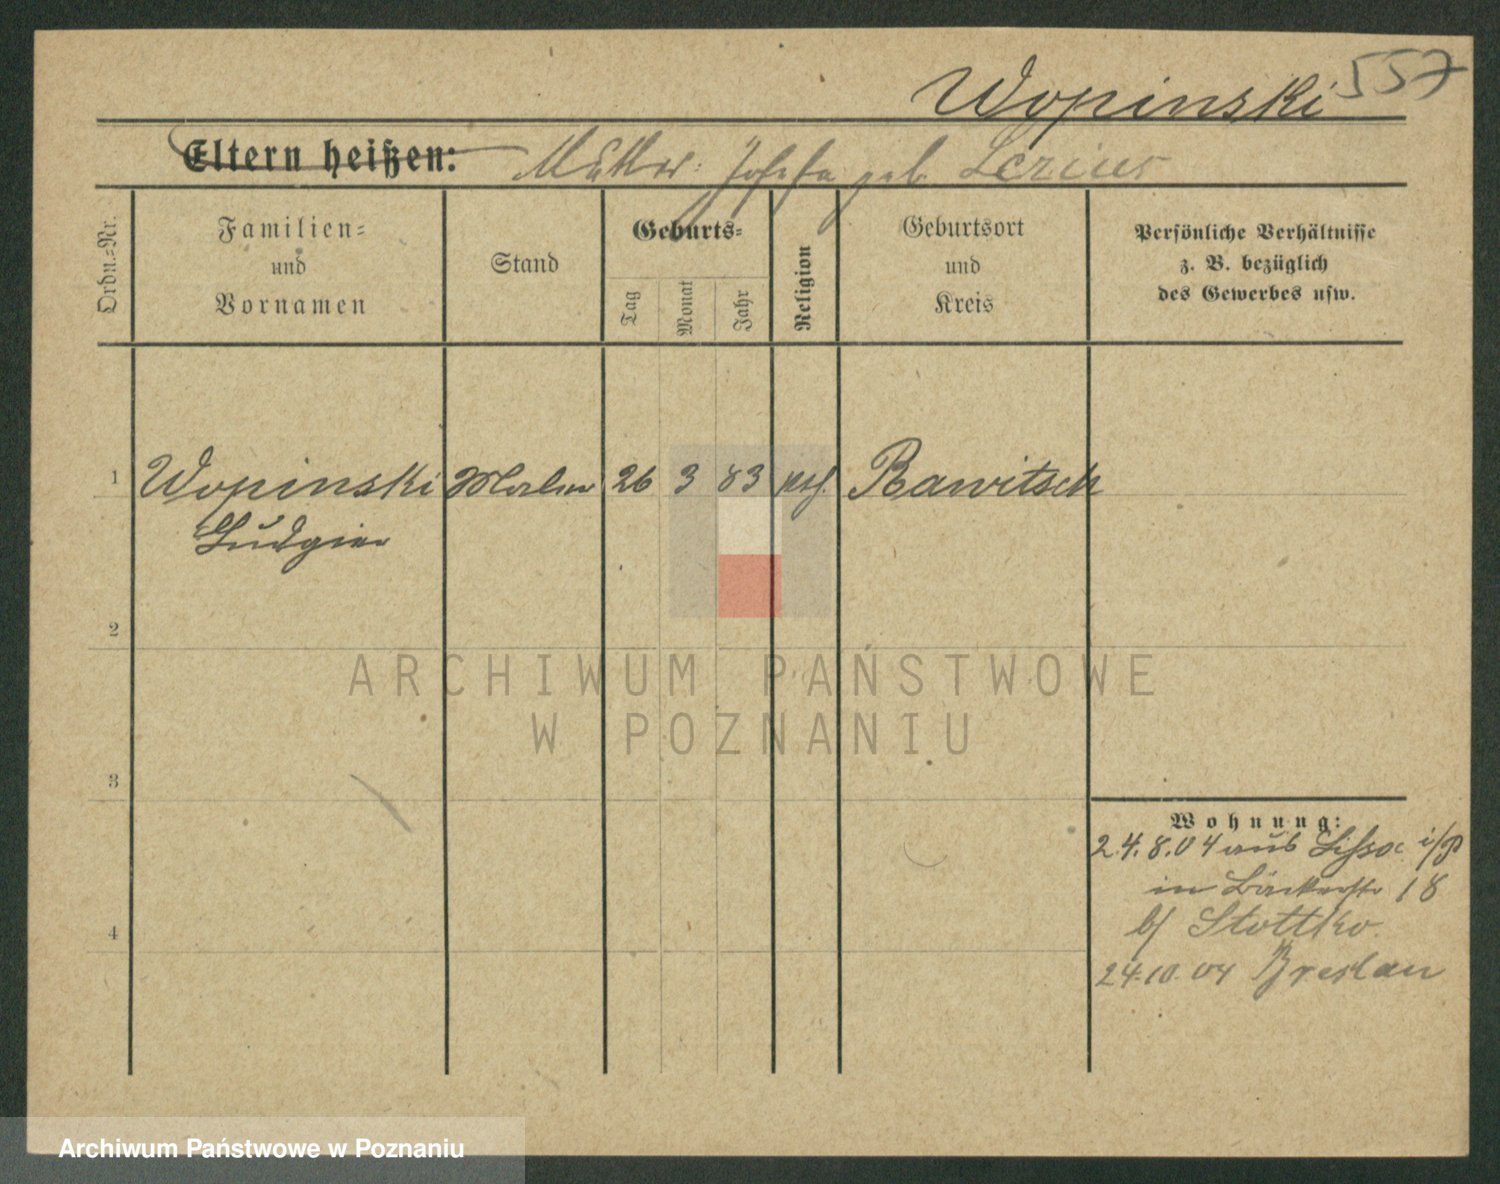 Wopinski 557
Eltern heißen: Mutter: Josefa geb. Lerius
Ordn.-Nr.
Familien-
und
Vornamen
Stand
Geburts-
Tag
Monat
Jahr
Religion
Geburtsort
und
Kreis
Persönliche Verhältnisse
z. B. bezüglich
des Gewerbes usw.
1 Wopinski Maler 26 3 83 Rawitsch
Ludgier
2
ARCHIWUM PAŃSTWOWE
W POZNANIU
3
Wohnung:
24.8.04 aus Lissa i/P
in Bäckerstr 18
4
b/ Stottko.
24.10.04 Breslau
Archiwum Państwowe w Poznaniu